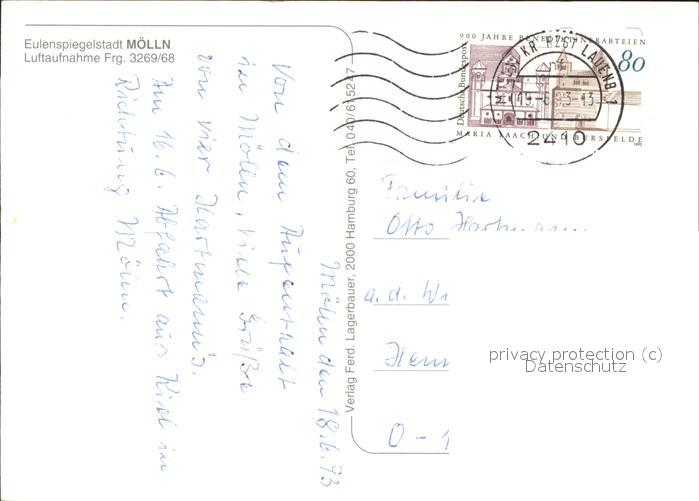 Eulenspiegelstadt MÖLLN
Luftaufnahme Frg. 3269/68
Mölln den 18.6.93
Von dem Aufenthalt
in Mölln, viele Grüße
von vier Hartmann's.
Am 16.6. Abfahrt aus Kiel in
Richtung Mölln.
Verlag Ferd. Lagerbauer, 2000 Hamburg 60, Tel. 040/61 52 47
900 JAHRE BENEDIKTINERABTEIEN
Deutsche Bundespost
80
MARIA LAACH UND BURSFELDE
2410
Familie
Otto Hartmann
a. d. Wi
O - 1
privacy protection (c)
Datenschutz